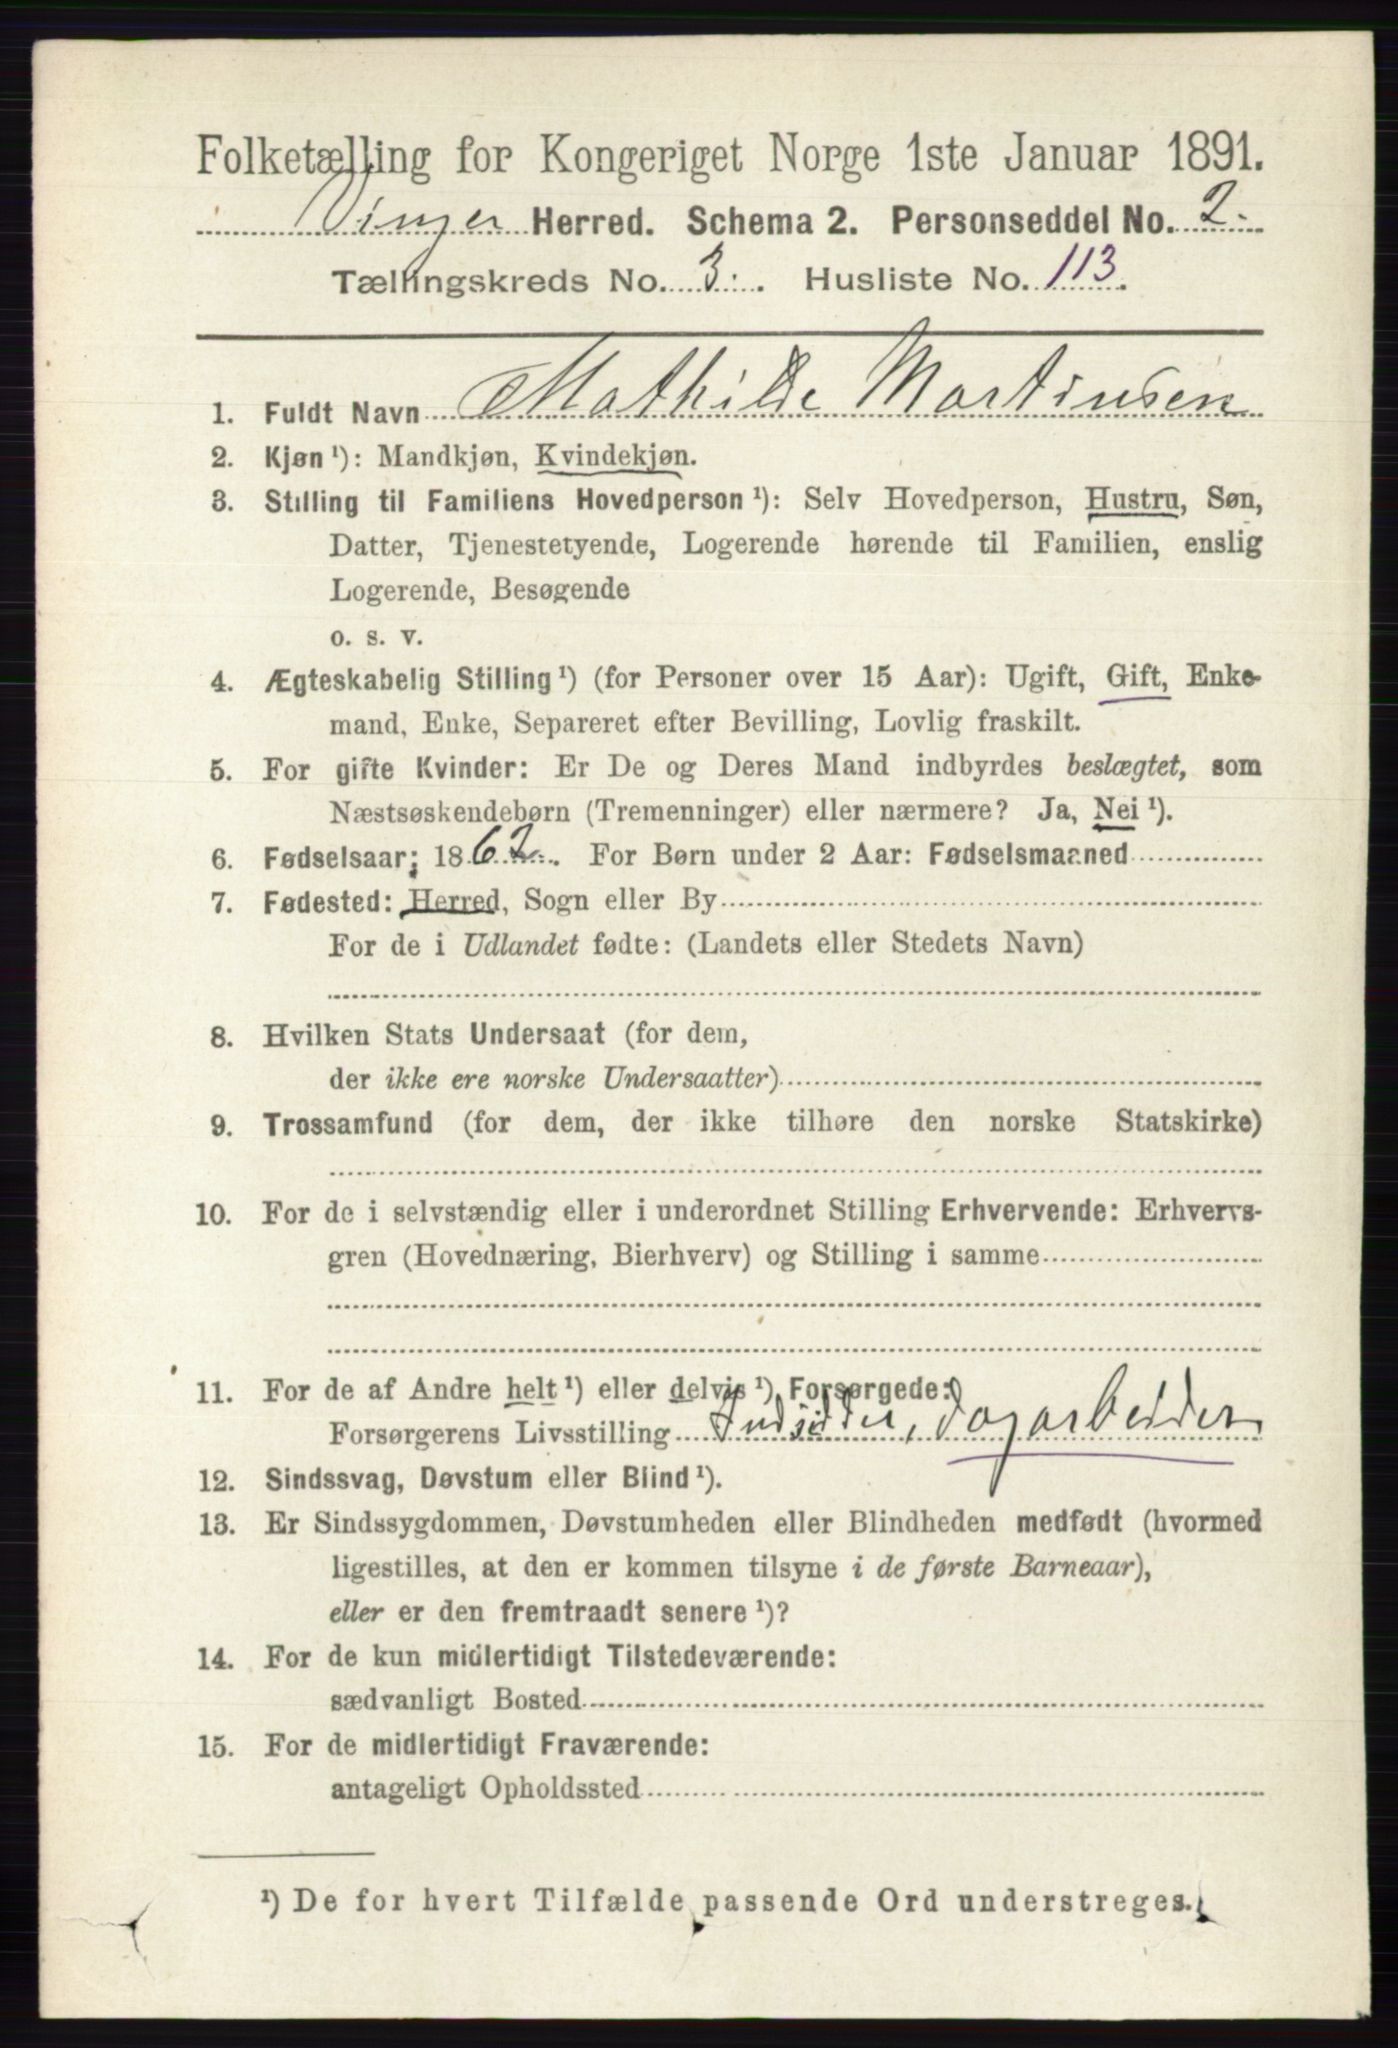 Folketælling for Kongeriget Norge 1ste Januar 1891.
Vinger Herred. Schema 2. Personseddel No. 2.
Tællingskreds No. 3. Husliste No. 113.
1. Fuldt Navn Mathilde Martinsen
2. Kjøn ¹): Mandkjøn, Kvindekjøn.
3. Stilling til Familiens Hovedperson ¹): Selv Hovedperson, Hustru, Søn,
Datter, Tjenestetyende, Logerende hørende til Familien, enslig
Logerende, Besøgende
o. s. v.
4. Ægteskabelig Stilling ¹) (for Personer over 15 Aar): Ugift, Gift, Enke-
mand, Enke, Separeret efter Bevilling, Lovlig fraskilt.
5. For gifte Kvinder: Er De og Deres Mand indbyrdes beslægtet, som
Næstsøskendebørn (Tremenninger) eller nærmere? Ja, Nei ¹).
6. Fødselsaar: 1862. For Børn under 2 Aar: Fødselsmaaned
7. Fødested: Herred, Sogn eller By
For de i Udlandet fødte: (Landets eller Stedets Navn)
8. Hvilken Stats Undersaat (for dem,
der ikke ere norske Undersaatter)
9. Trossamfund (for dem, der ikke tilhøre den norske Statskirke)
10. For de i selvstændig eller i underordnet Stilling Erhvervende: Erhvervs-
gren (Hovednæring, Bierhverv) og Stilling i samme
11. For de af Andre helt ¹) eller delvis ¹) Forsørgede:
Forsørgerens Livsstilling Indsidder, dagarbeider
12. Sindssvag, Døvstum eller Blind ¹).
13. Er Sindssygdommen, Døvstumheden eller Blindheden medfødt (hvormed
ligestilles, at den er kommen tilsyne i de første Barneaar),
eller er den fremtraadt senere ¹)?
14. For de kun midlertidigt Tilstedeværende:
sædvanligt Bosted
15. For de midlertidigt Fraværende:
antageligt Opholdssted
¹) De for hvert Tilfælde passende Ord understreges.